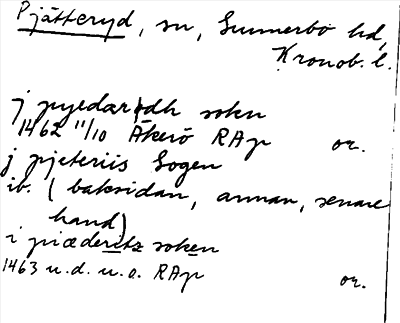 Pjätteryd, sn, Sunnerbo hd,
Kronob. l.
j pyedær|dh sokn
1462 11/10 Åkerö RAp or.
j pjeteriis Sogen
ib. (baksidan, annan, senare
hand)
i piæderitz soken
1463 u.d. u.o. RAp or.